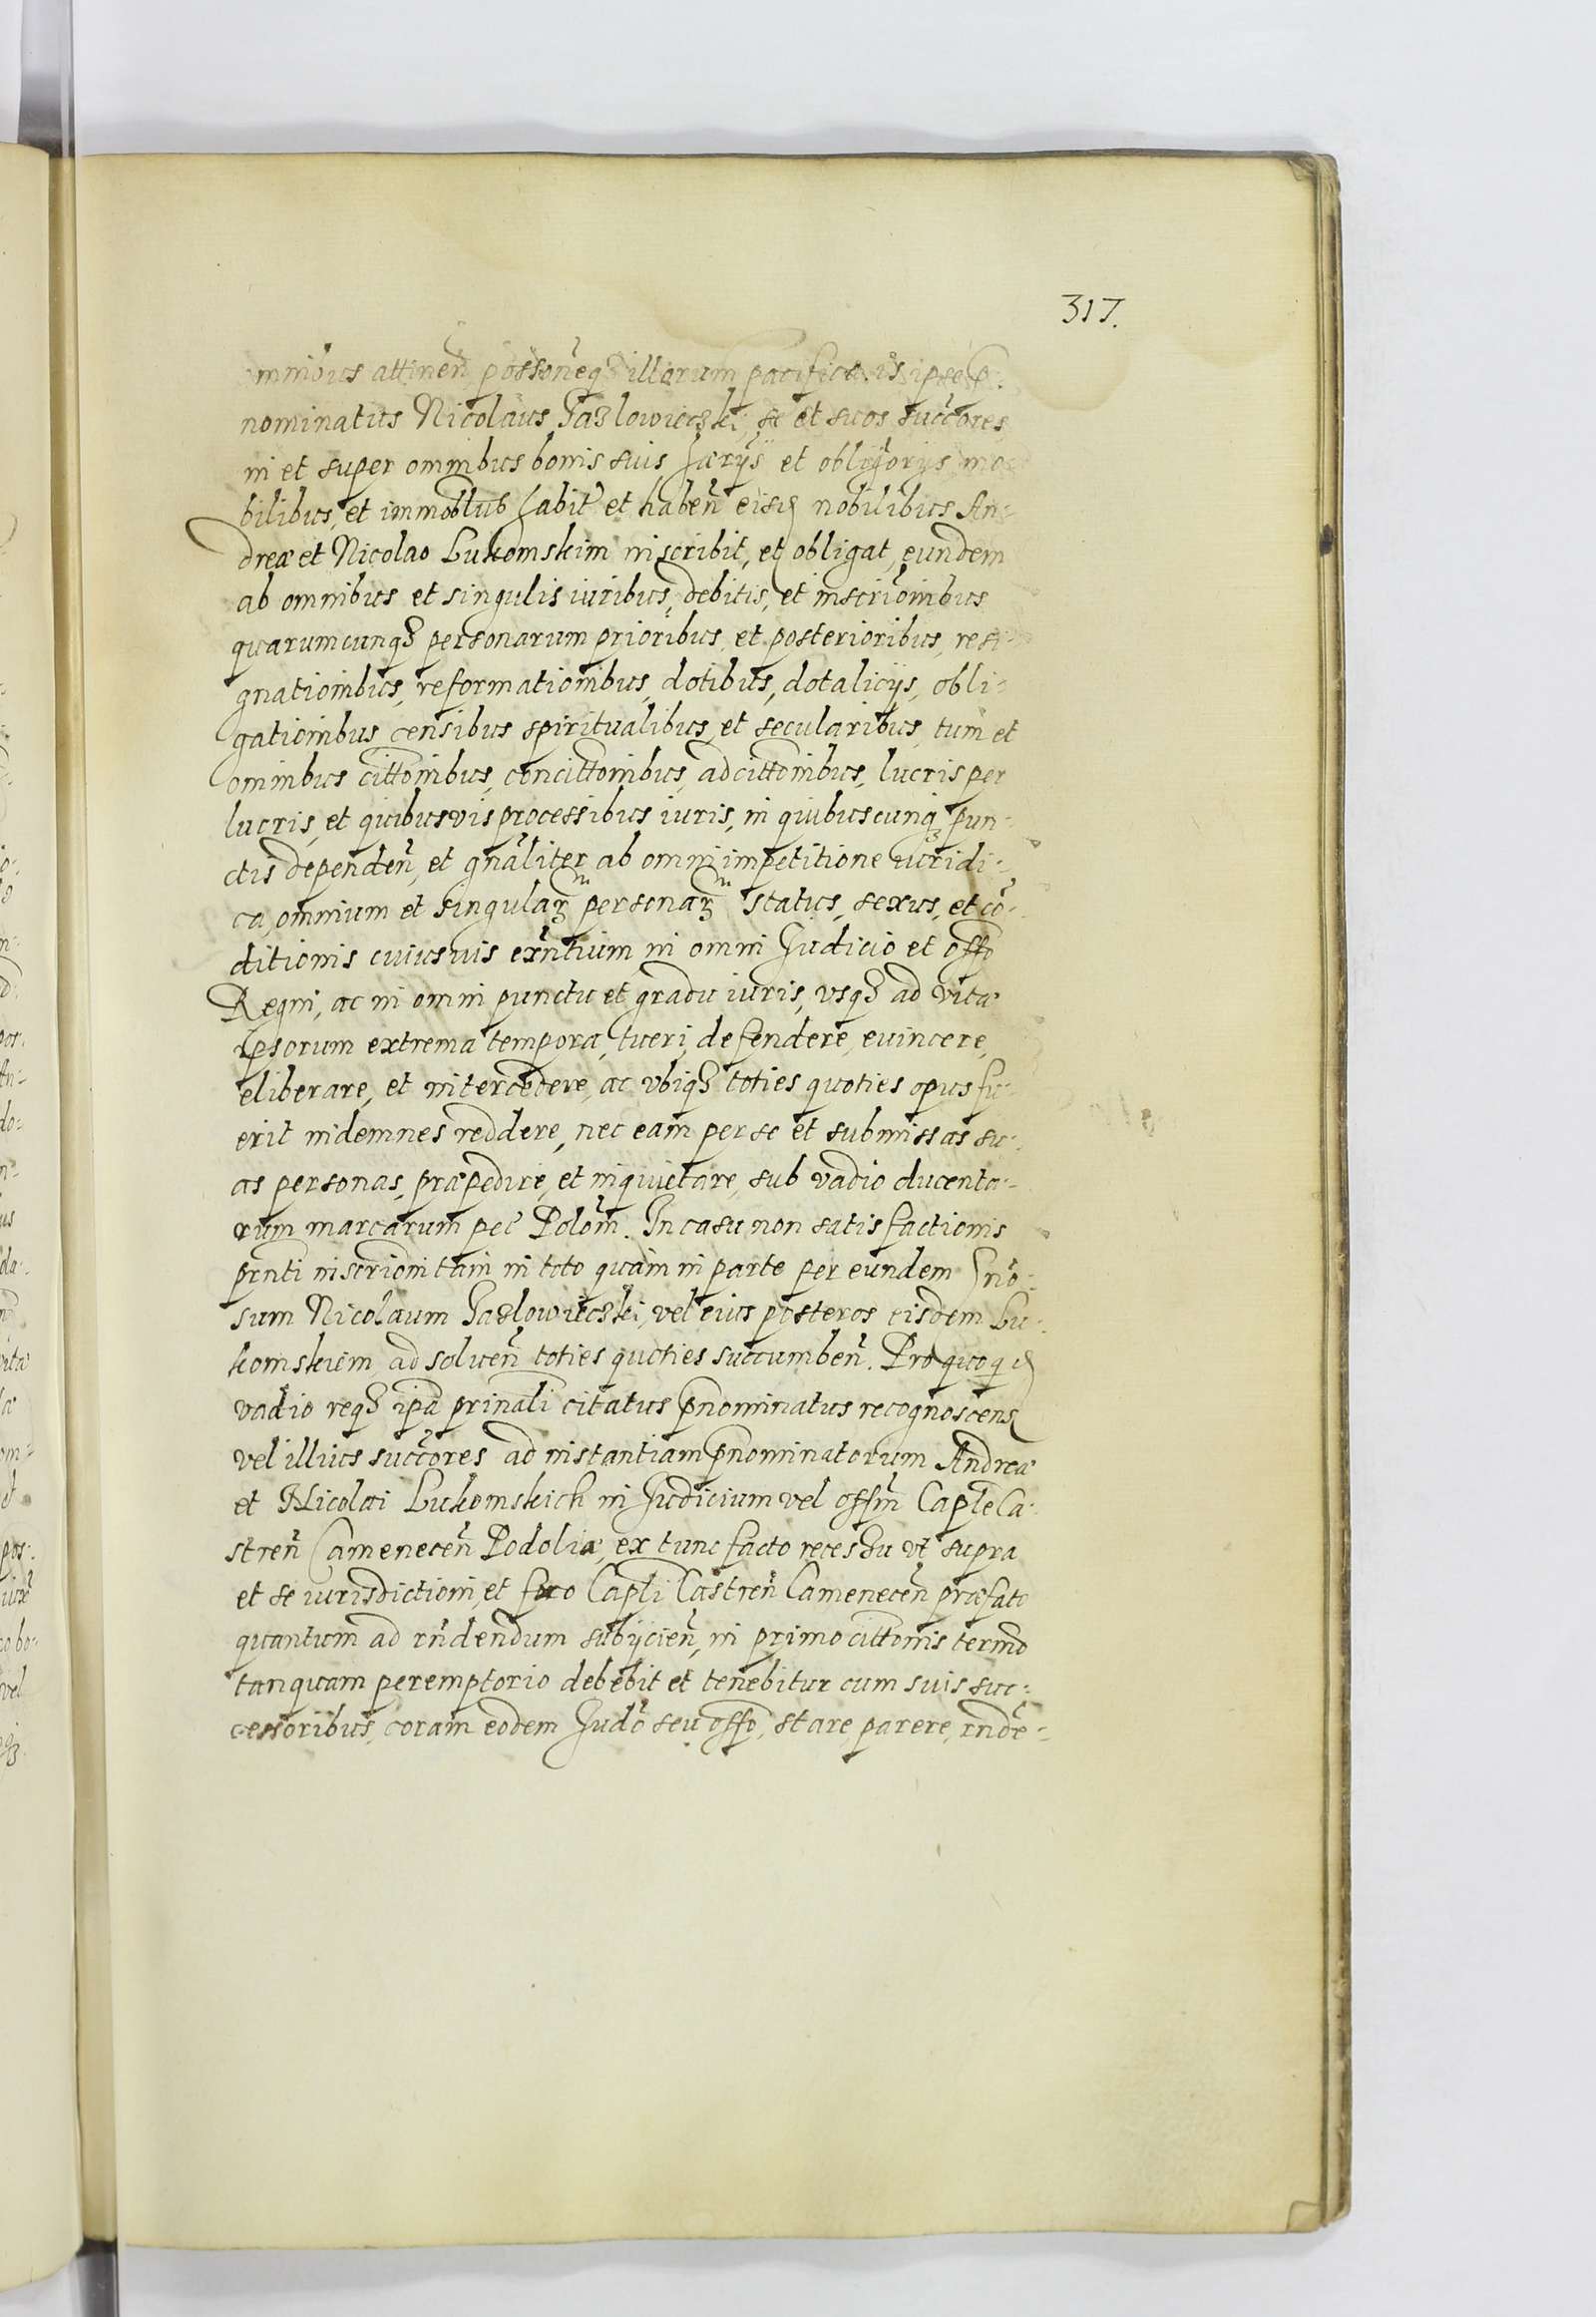 317.
omnibus attinen̄ possoneqʒ illorum pacifica. is ipse p̄-
nominatus Nicolaus Jazlowieczki, se et suos succores
in et super omnibus bonis suis hærijs et obligorijs mo-
bilibus, et immoblibus habit̄ et haben̄ eisd nobilibus An-
dreæ et Nicolao Lukomskim inscribit, et obligat, eundem
ab omnibus et singulis iuribus, debitis, et inscriōnibus
quarumcunqʒ personarum prioribus, et posterioribus, resi-
gnationibus, reformationibus, dotibus, dotalicijs, obli-
gationibus censibus spiritualibus, et secularibus, tum et
omnibus cittōnibus, concittōnibus, adcittōnibus, lucris per
lucris, et quibusvis processibus iuris, in quibuscunqʒ pun-
ctis dependen̄, et gnāliter ab omni impetitione iuridi-
ca, omnium et singulaꝝ personaꝝ status, sexus, et cō-
ditionis cuiusuis exn̄tium, in omni Judicio et offō
Regni, ac in omni punctu et gradu iuris, vsqʒ ad vitæ
ipsorum extrema tempora, tueri, defendere, euincere,
eliberare, et intercedere, ac vbiqʒ toties quoties opus fu-
erit indemnes reddere, nec eam per se et submissas su-
as personas, præpedire, et inquietare, sub vadio ducenta-
rum marcarum pec̄ Polōm. In casu non satisfactionis
prn̄ti inscriōni tam in toto quàm in parte per eundem Gn̄o-
sum Nicolaum Jazlowieczki, vel eius posteros eisdem Lu-
komskiem, ad soluen̄ toties quoties succumben̄. Pro quo qd
vadio reqʒ ip̄a prin̄ali citatus p̄nominatus recognoscens
vel illius succores ad instantiam p̄nominatorum Andreæ
et Nicolai Lukomskich in Judicium vel offm̄ Caple Ca-
stren̄ Camenecen̄ Podoliæ, ex tunc facto recessu vt supra
et se iurisdictioni, et foro Capli Castren̄ Camenecen̄ præfato
quantum ad rn̄dendum subijcien̄, in primo cittōnis term̄o
tanquam peremptorio debebit et tenebitur cum suis suc-
cessoribus, coram eodem Judō seu offō, stare, parere, rn̄de-